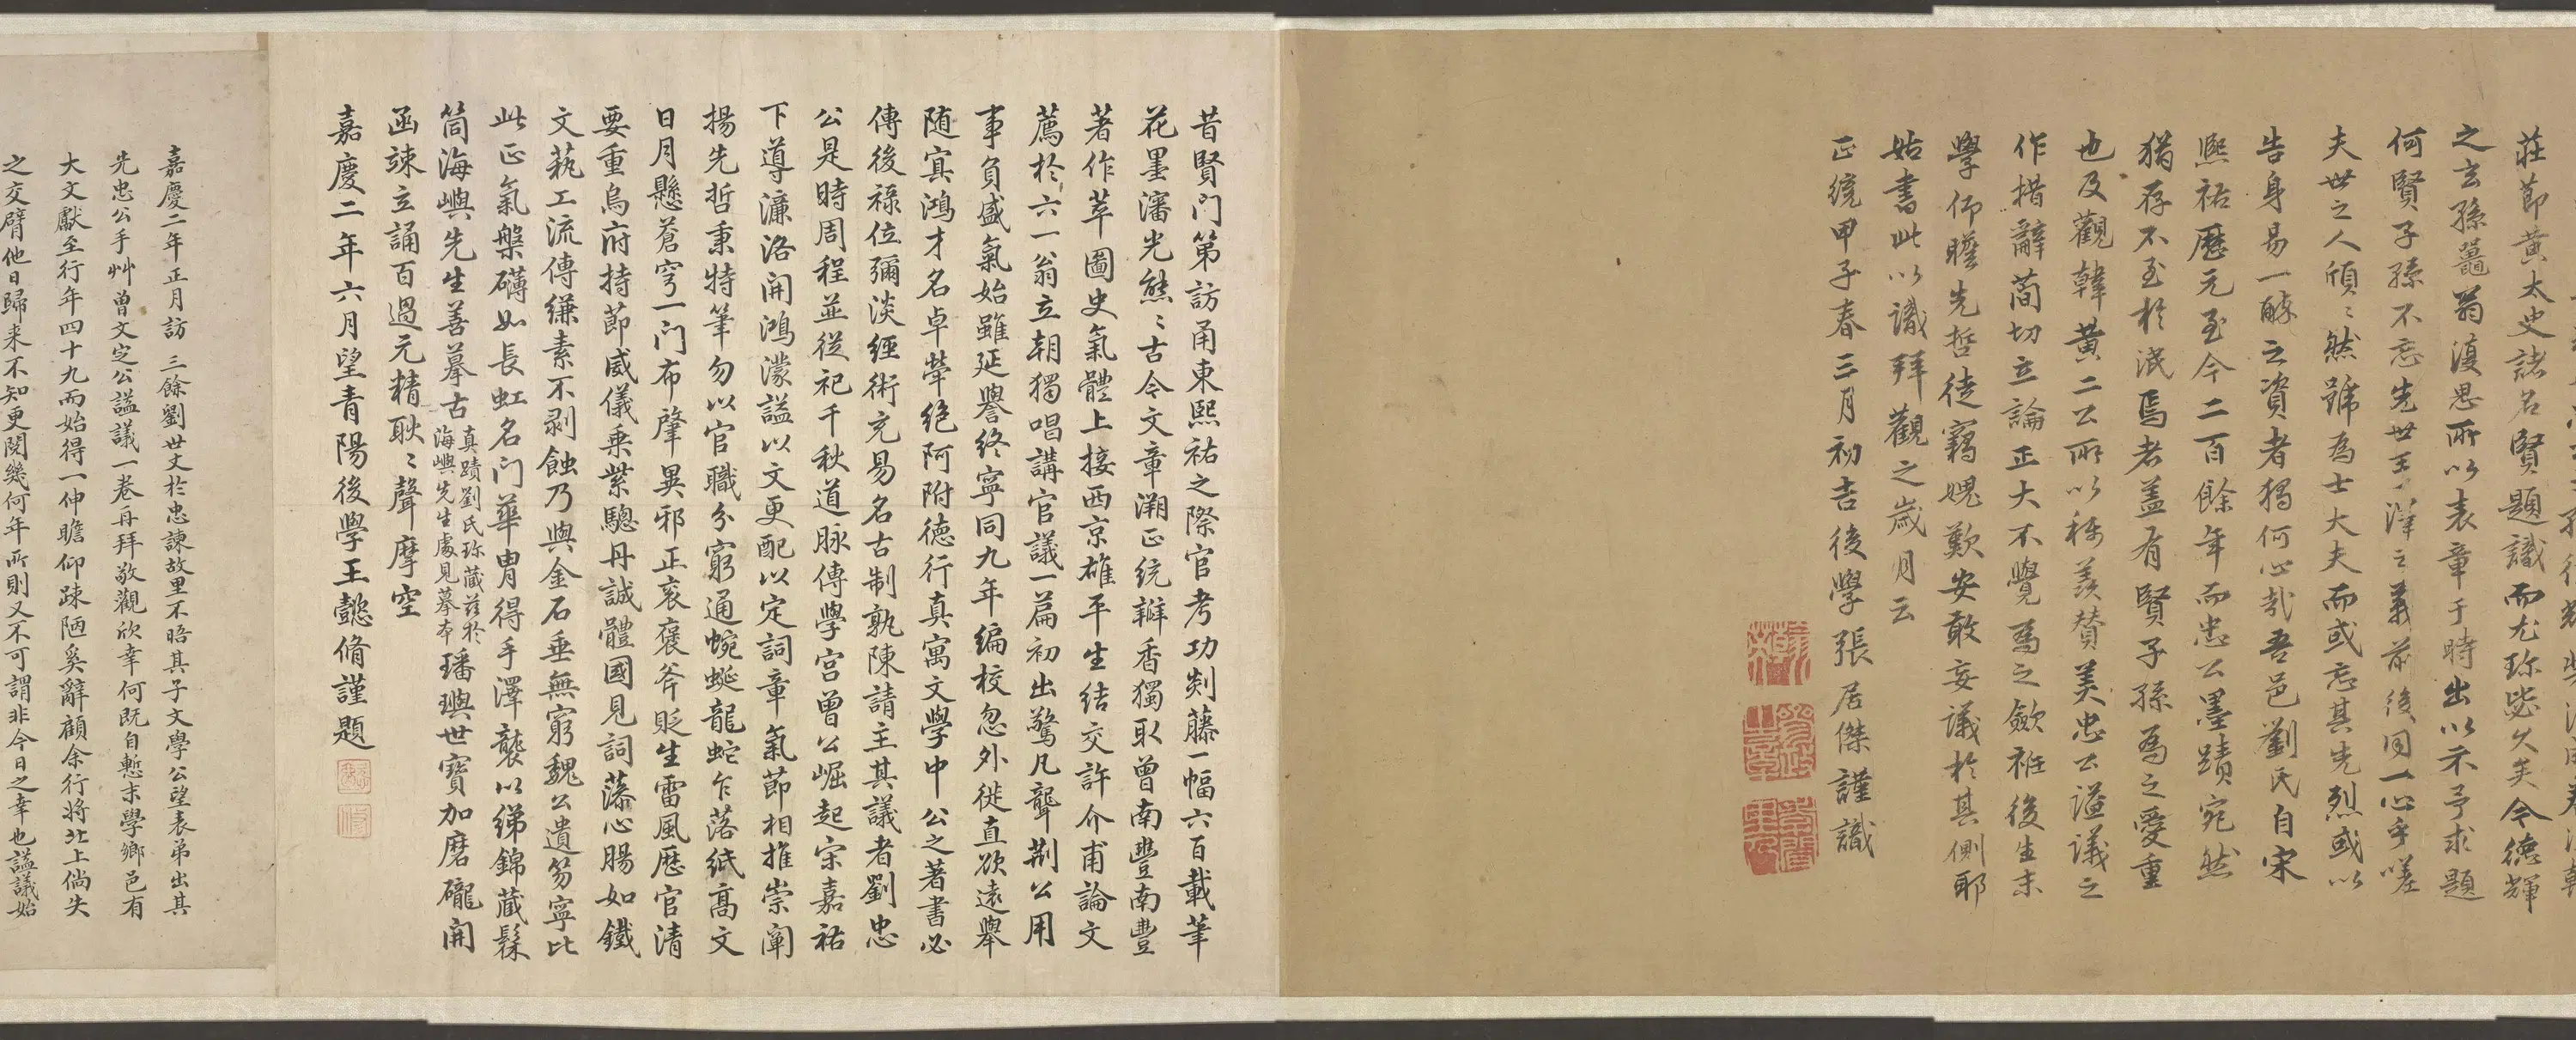 莊節黃太史諸名賢題識而尤珎毖久矣今德輝
之玄孫蠶翁復思所以表章于時出以示予求題
何賢子孫不忘先世手澤之義前後同一心乎嗟
夫世之人頎〻然號為士大夫而或忘其先烈或以
告身易一酔之資者獨何心哉吾邑劉氏自宋
熈祐歷元至今二百餘年而忠公墨蹟宛然
猶存不至於泯焉者盖有賢子孫為之愛重
也及觀韓黃二公所以稱羨贊美忠公諡議之
作措辭簡切立論正大不覺為之斂袵後生末
學仰瞻先哲徒竊媿歎安敢妄議於其側耶
姑書此以識拜觀之歲月云
正統甲子春三月初吉後學張居傑謹識
昔賢门第訪甬東熙祐之際官考功剡藤一幅六百載筆
花墨瀋光熊〻古今文章溯正統瓣香獨取曾南豐南豐
著作萃圖史氣體上接西京雄平生結交許介甫論文
薦於六一翁立朝獨唱講官議一篇初出驚凡聾荆公用
事負盛氣始雖延譽終寧同九年编校忽外徙直欲遠舉
随寘鴻才名卓犖绝阿附德行真寓文學中公之著書必
傳後祿位彌淡經術充易名古制孰陳請主其議者劉忠
公是時周程並從祀千秋道脉傳學宫曾公崛起宗嘉祐
下導濂洛開鴻濛諡以文更配以定詞章氣節相推崇闡
揚先哲秉特筆勿以官職分窮通蜿蜒龍蛇乍落紙高文
日月懸蒼穹一门布肈異邪正衮褒斧貶生雷風歷官清
要重烏府持節威儀乗紫驄丹誠體國見詞藻心腸如鐵
文藝工流傳缣素不剥蝕乃與金石垂無窮魏公遺笏寧比
此正氣槃礴如長虹名门華胄得手澤襲以綈錦藏髹
筒海嶼先生善摹古真蹟劉氏珎藏兹於海嶼先生處見摹本璠璵世寳加磨礲開
函竦立誦百過元精耿〻聲摩空
嘉慶二年六月望青陽後學王懿脩謹題
嘉慶二年正月訪三餘劉世丈於忠諫故里不晤其子文學公望表弟出其
先忠公手艸曾文定公諡議一卷再拜敬觀欣幸何既自慙末學鄉邑有
大文獻至行年四十九而始得一伸瞻仰踈陋奚辭顧余行將北上倘失
之交臂他日歸来不知更閱幾何年所則又不可謂非今日之幸也諡議始